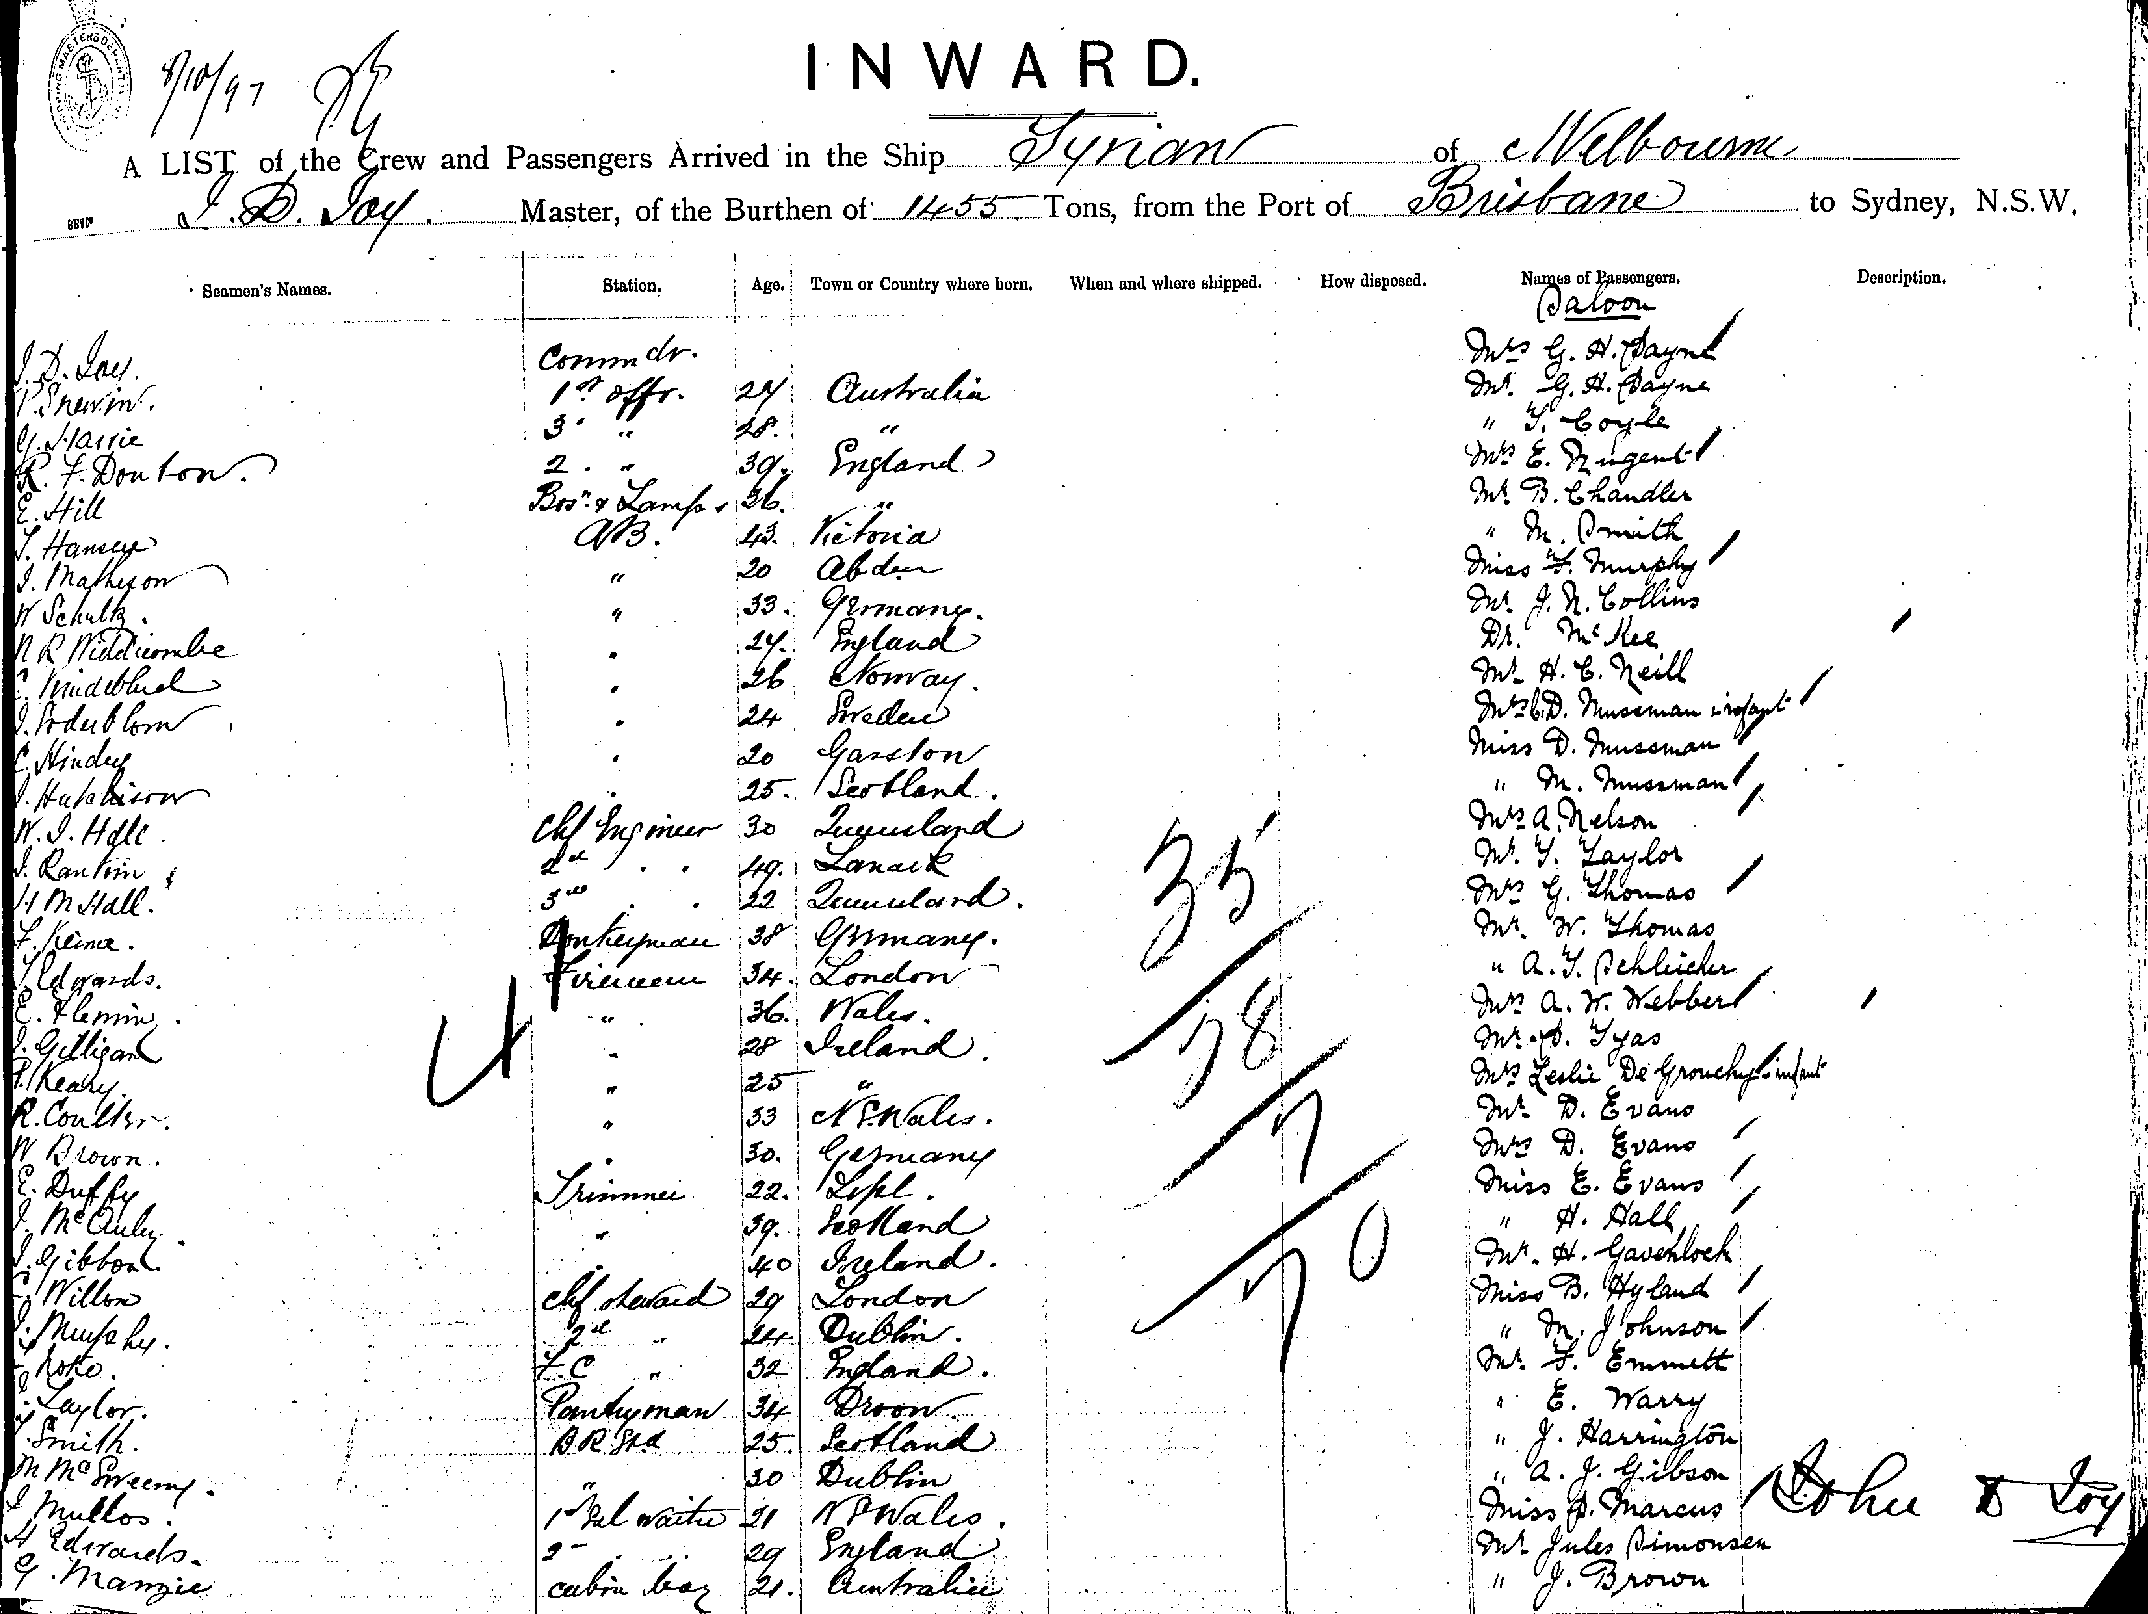 8/10/97
INWARD.
A LIST of the Crew and Passengers Arrived in the Ship Tyrian of Melbourne
J. D. Joy. Master, of the Burthen of 1455 Tons, from the Port of Brisbane to Sydney, N.S.W.
Seamen's Names. Station. Age. Town or Country where born. When and where shipped. How disposed. Names of Passengers. Description.
Saloon
J. D. Joy. Commdr. Mrs G. H. Payne
1st offr. 27 Australia Mr. G. H. Payne
3 " 28. " " T. Coyle
R. F. Douton. 2. " 39. England Mrs E. Nugent
E. Hill Bosn & Lamps 36. " Mr B. Chandler
T. Hansen AB. 43. Victoria " M. Smith
J. Matheson " 20 Abdeen Miss F. Murphy
W Schultz. " 33. Germany. Mr. J. N. Collins
N R Widdicombe " 27. England Dr. McKee
" 26 Norway. Mr H. C. Neill
J. Soderblom " 24 Sweden Mrs C. D. Mussman & infant
C. Hindey " 20 Garston Miss D. Mussman
J. Hutchison " 25. Scotland. " M. Mussman
W. J. Hall Chf Engineer 30 Queensland Mrs A. Nelson
J. Rankin 2nd " " 49. Lanark Mr. T. Taylor
H M Hall. 3rd " " 22 Queensland. Mrs G. Thomas
F. Keina. Donkeyman 38 Germany. Mr. W. Thomas
T Edwards. Firemen 34. London " A. T. Schleicher
E. Flemin. " 36. Wales. Mrs A. W. Webber
J. Gilligan " 28 Ireland. Mr. Tyas
P. Keary. " 25 " Mrs Leslie De Grouchy & infant
R. Coulter. " 33 N S. Wales. Mr. D. Evans
W Brown. " 30. Germany Mrs D. Evans
E. Duffy Trimmer 22. Lpl. Miss E. Evans
J. McAuley. " 39. Scotland " H. Hall
J. Gibbon. 40 Ireland. Mr. H. Gavenlock
Willon Chf steward 29 London Miss B. Hyland
J. Murphy. 2d " 24 Dublin. " M. Johnson
F. C " 32 England. Mr. F. Emmett
Taylor. Pantryman 34 Droon. " E. Warry
Smith. B R Std 25. Scotland " J. Harrington
M McSweeny. " 30 Dublin " A. J. Gibson
J Mullos. 1st Sal waiter 21 N S Wales. Miss S. Marcus
H Edwards. 2 " " 29 England Mr Jules Simonsen
G. Manzie cabin boy 21. Australia " J. Brown
35
38
7
70
41
John D Joy